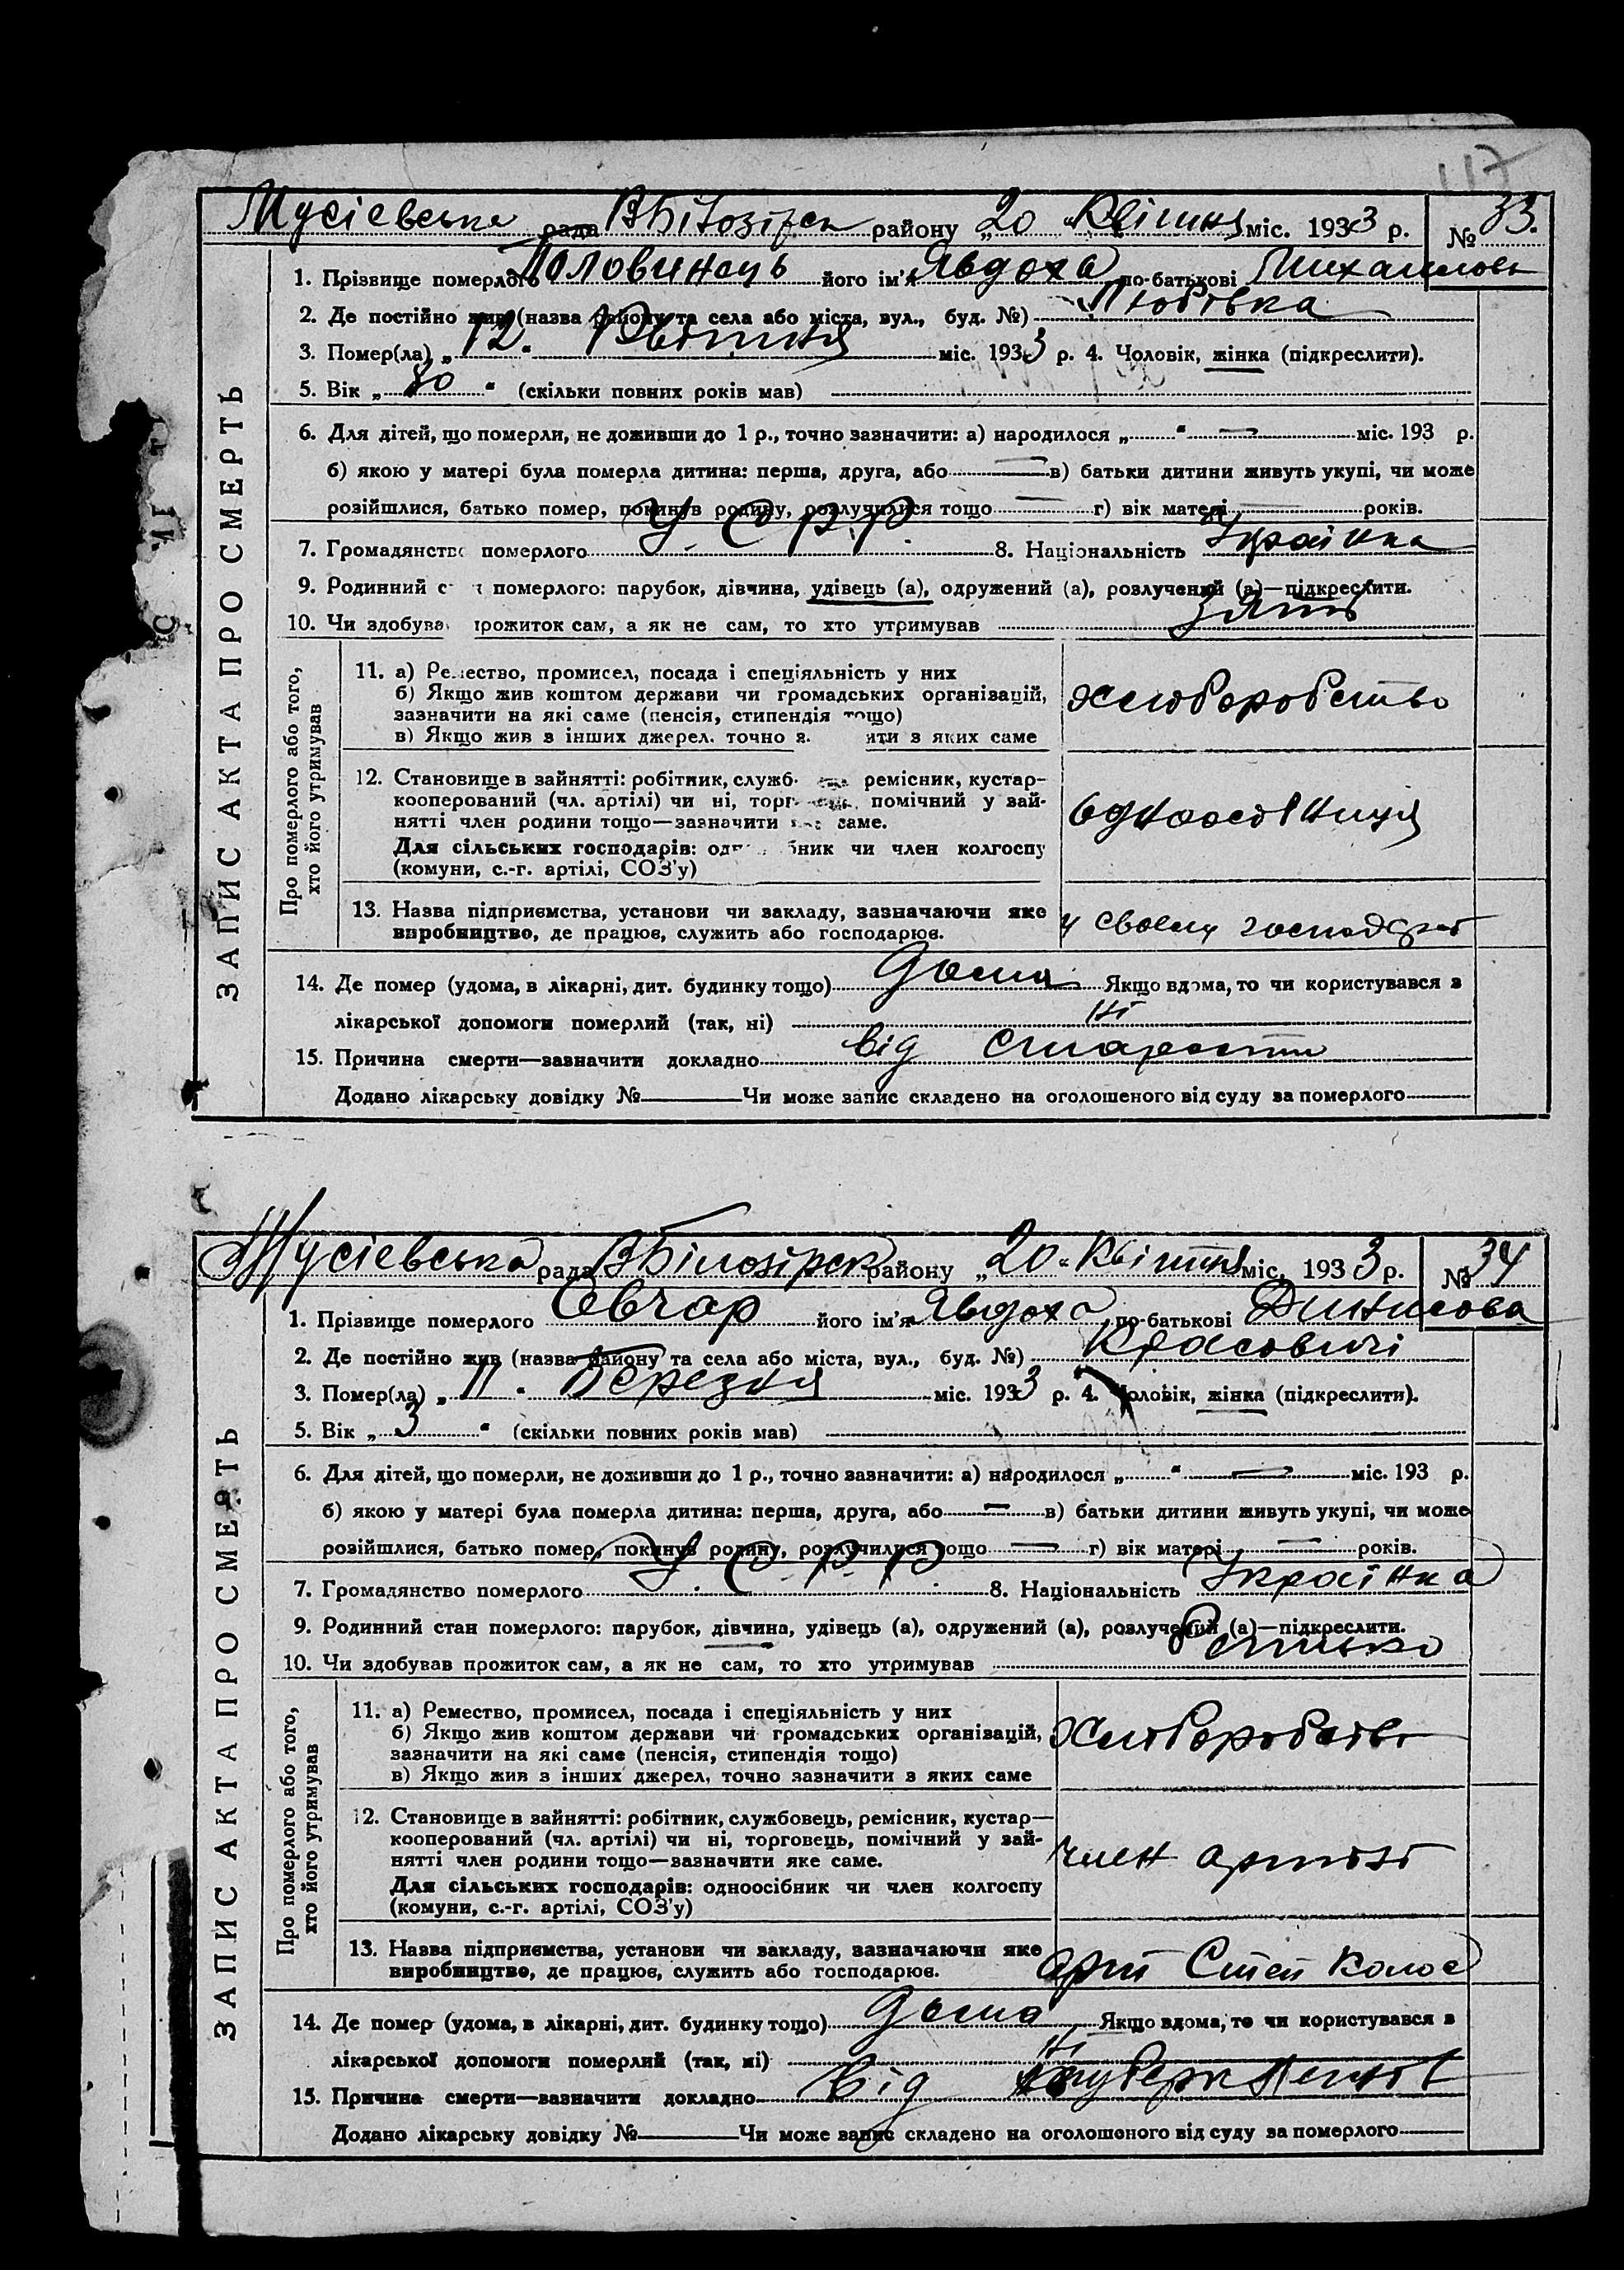 117
Мусієвська рада В Білозірськ району „20 "Квітня міс. 1933 р. № 33.
1. Прізвище померлого Половинець його ім'я Явдоха по-батькові Михайлов
2. Де постійно жив (назва району та села або міста, вул., буд. №) Любівка
3. Помер(ла) „12." Квітня міс. 1933 р. 4. Чоловік, жінка (підкреслити).
5. Вік „80" (скільки повних років мав)
6. Для дітей, що померли, не доживши до 1 р., точно зазначити: а) народилося „ " — міс. 193 р.
б) якою у матері була померла дитина: перша, друга, або — в) батьки дитини живуть укупі, чи може
розійшлися, батько помер, покинув родину, розлучилися тощо — г) вік матері — років.
7. Громадянство померлого У.С.Р.Р. 8. Національність Українка
9. Родинний с н померлого: парубок, дівчина, удівець (а), одружений (а), розлучений (а)—підкреслити.
10. Чи здобував прожиток сам, а як не сам, то хто утримував зять
ЗАПИС АКТА ПРО СМЕРТЬ
Про померлого або того, хто його утримував
11. а) Ремество, промисел, посада і спеціяльність у них
б) Якщо жив коштом держави чи громадських організацій,
зазначити на які саме (пенсія, стипендія тощо)
в) Якщо жив з інших джерел. точно з ити з яких саме
Хліборобство
12. Становище в зайнятті: робітник, служб ремісник, кустар-
кооперований (чл. артілі) чи ні, торг помічний у зай-
нятті член родини тощо—зазначити саме.
Для сільських господарів: од бник чи член колгоспу
(комуни, с.-г. артілі, СОЗ'у)
Одноосібниця
13. Назва підприємства, установи чи закладу, зазначаючи яке
виробництво, де працює, служить або господарює.
у своему господарст
14. Де помер (удома, в лікарні, дит. будинку тощо) дома Якщо вдома, то чи користувався з
лікарської допомоги померлий (так, ні) Ні
15. Причина смерти—зазначити докладно від старости
Додано лікарську довідку № — Чи може запис складено на оголошеного від суду за померлого
Мусієвська рада В Білозірськ району „20 "Квітня міс. 1933 р. № 34
1. Прізвище померлого Овчар його ім'я Явдоха по-батькові Динисова
2. Де постійно жив (назва району та села або міста, вул., буд. №) Красовичі
3. Помер(ла) „11." Березня міс. 1933 р. 4. Чоловік, жінка (підкреслити).
5. Вік „3" (скільки повних років мав)
6. Для дітей, що померли, не доживши до 1 р., точно зазначити: а) народилося „ " — міс. 193 р.
б) якою у матері була померла дитина: перша, друга, або — в) батьки дитини живуть укупі, чи може
розійшлися, батько помер, покинув родину, розлучилися тощо — г) вік матері — років.
7. Громадянство померлого У.С.Р.Р. 8. Національність Українка
9. Родинний стан померлого: парубок, дівчина, удівець (а), одружений (а), розлучений (а)—підкреслити.
10. Чи здобував прожиток сам, а як не сам, то хто утримував
ЗАПИС АКТА ПРО СМЕРТЬ
Про померлого або того, хто його утримував
11. а) Ремество, промисел, посада і спеціяльність у них
б) Якщо жив коштом держави чи громадських організацій,
зазначити на які саме (пенсія, стипендія тощо)
в) Якщо жив з інших джерел, точно зазначити з яких саме
Хліборобство
12. Становище в зайнятті: робітник, службовець, ремісник, кустар—
кооперований (чл. артілі) чи ні, торговець, помічний у зай-
нятті член родини тощо—зазначити яке саме.
Для сільських господарів: одноосібник чи член колгоспу
(комуни, с.-г. артілі, СОЗ'у)
Член артілі
13. Назва підприємства, установи чи закладу, зазначаючи яке
виробництво, де працює, служить або господарює.
Арт Степ Колос
14. Де помер (удома, в лікарні, дит. будинку тощо) дома Якщо вдома, то чи користувався з
лікарської допомоги померлий (так, ні) Ні
15. Причина смерти—зазначити докладно від
Додано лікарську довідку № — Чи може запис складено на оголошеного від суду за померлого